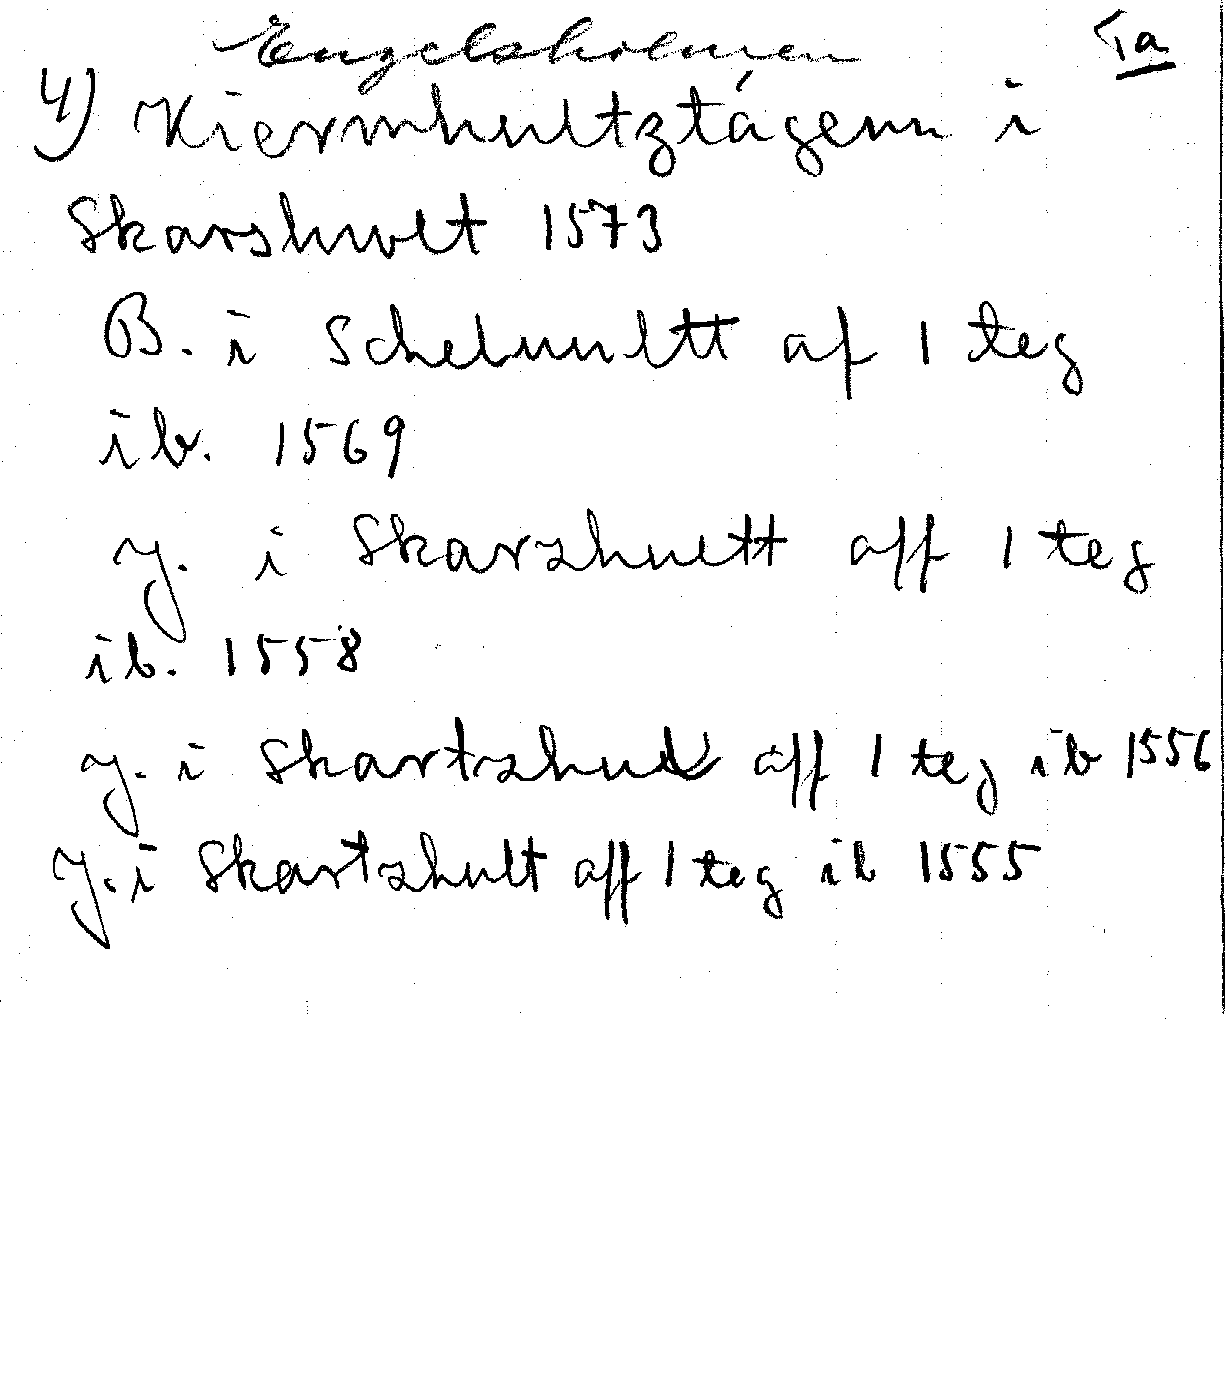 Engelsholmen
Ia
4) Kiermhultztágenn i
Skarshwlt 1573
B. i Schelnultt af 1 teg
ib. 1569
J. i Skarzhultt aff 1 teg
ib. 1558
J. i Skartzhult aff 1 teg ib 1556
J. i Skartzhult aff 1 teg ib 1555